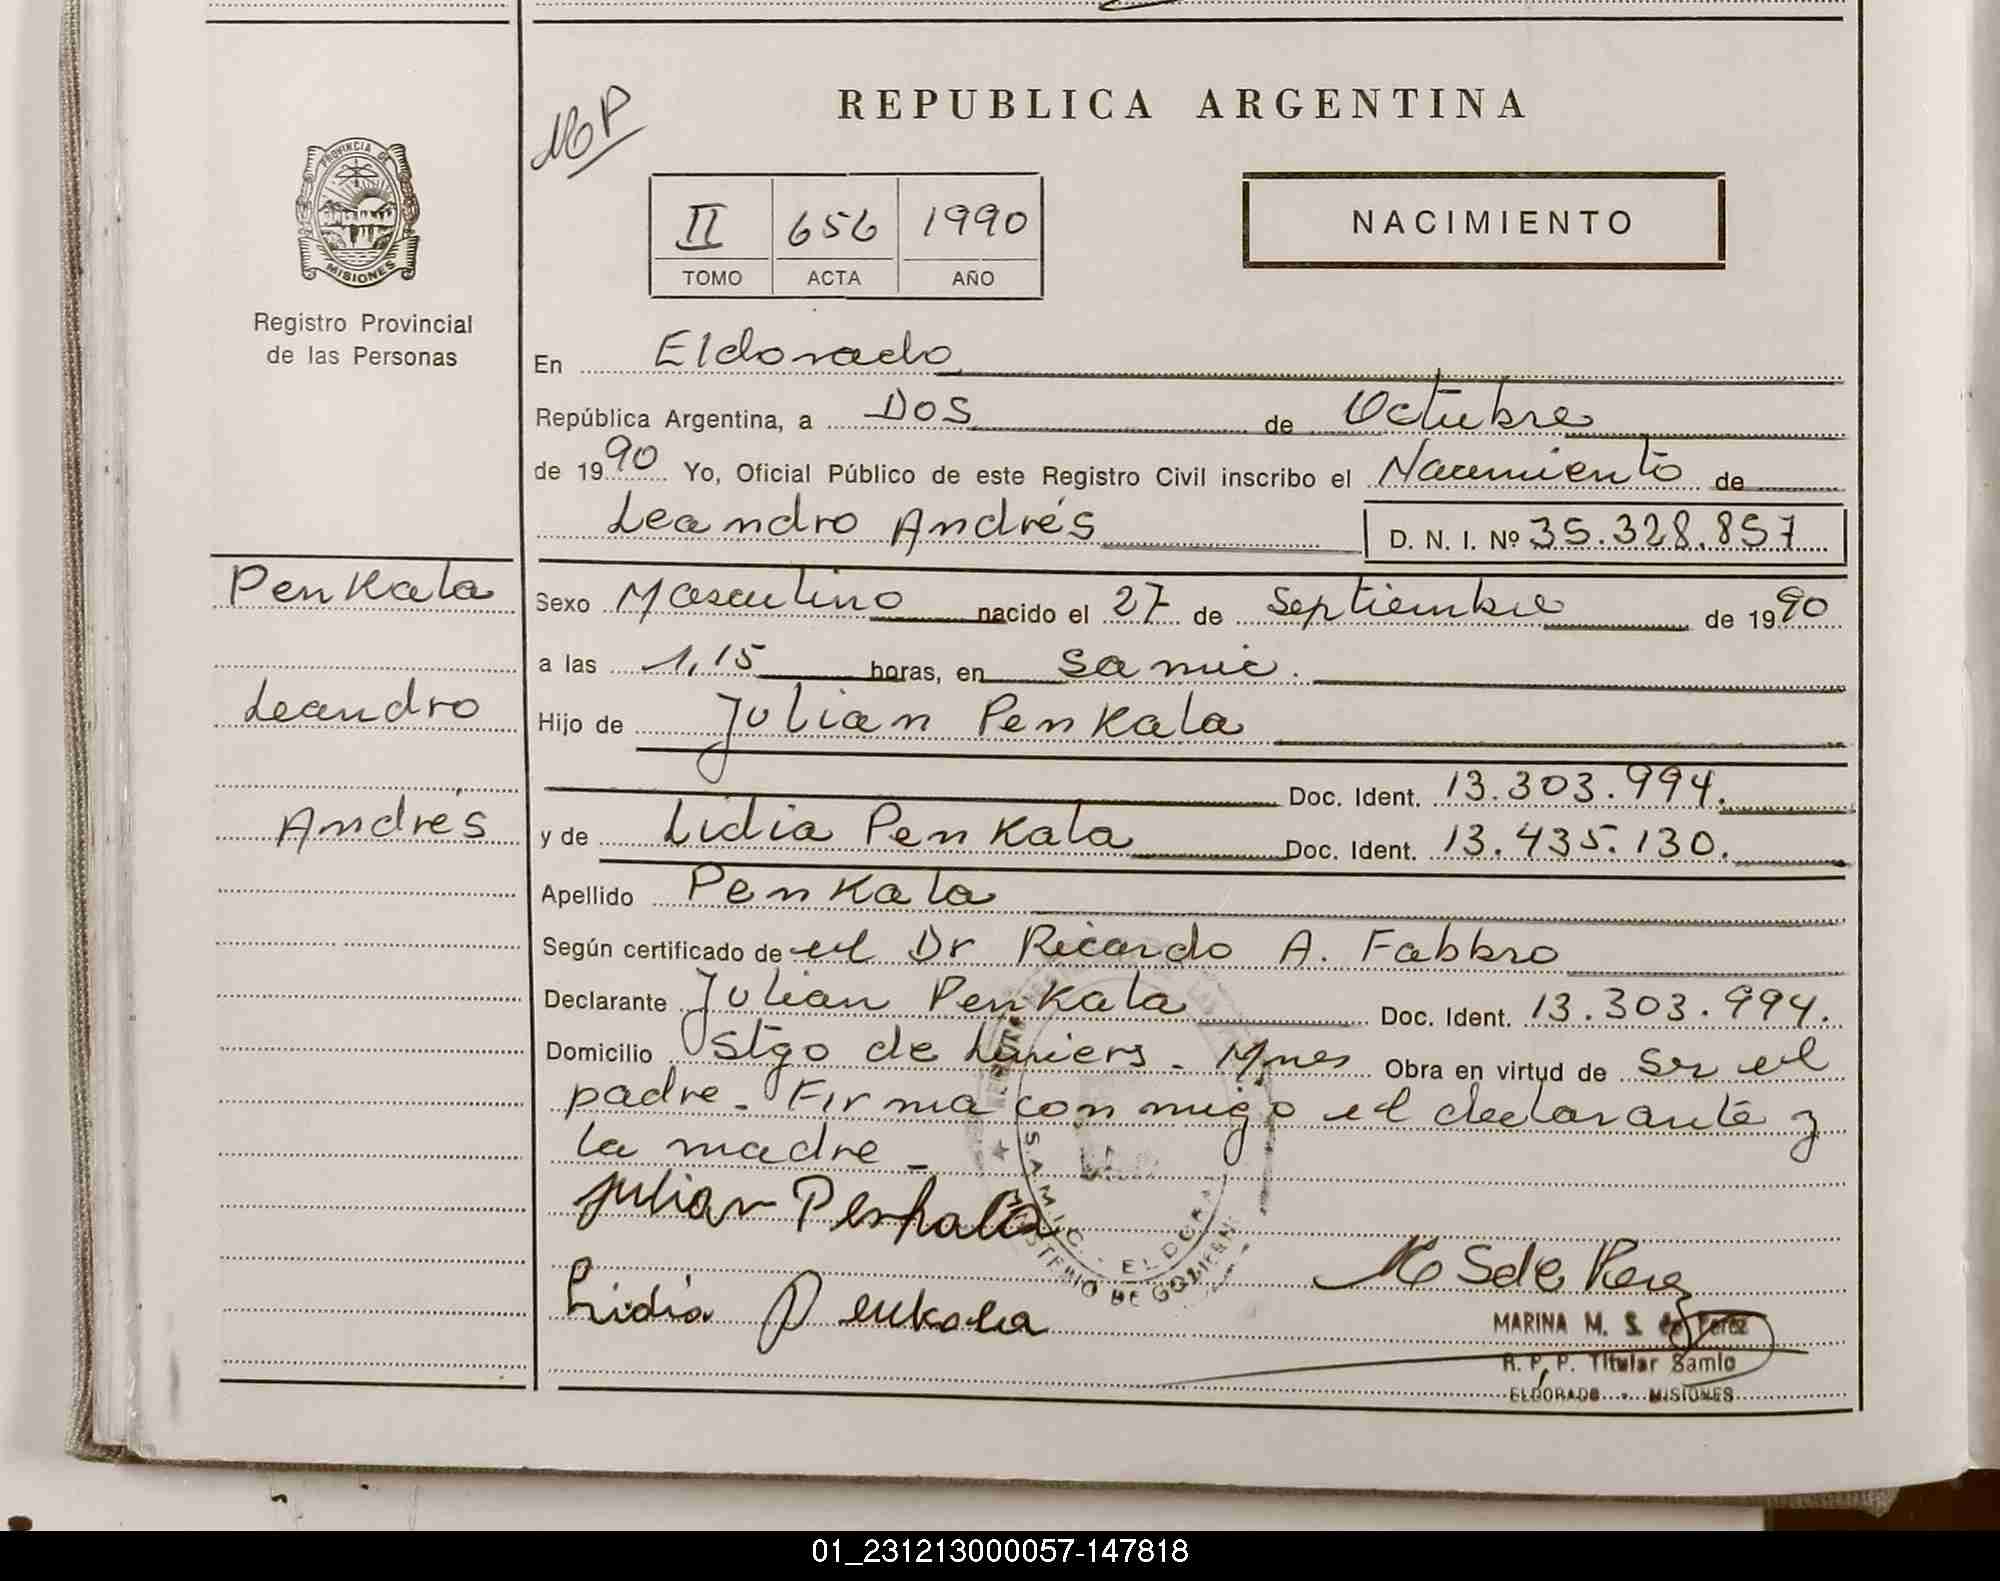 REPUBLICA ARGENTINA
MoP
II 656 1990
TOMO ACTA AÑO
NACIMIENTO
PROVINCIA DE
MISIONES
Registro Provincial
de las Personas
En Eldorado
República Argentina, a Dos de Octubre
de 1990 Yo, Oficial Público de este Registro Civil inscribo el Nacimiento de
Leandro Andrés D. N. I. Nº 35.328.857
Penkala
Leandro
Andrés
Sexo Masculino nacido el 27 de Septiembre de 1990
a las 1,15 horas, en Samic.
Hijo de Julian Penkala
Doc. Ident. 13.303.994.
y de Lidia Penkala Doc. Ident. 13.435.130.
Apellido Penkala
Según certificado de el Dr Ricardo A. Fabbro
Declarante Julian Penkala Doc. Ident. 13.303.994.
Domicilio Stgo de Liniers - Mnes Obra en virtud de ser el
padre - Firma conmigo el declarante y
la madre -
Julian Penkala
Lidia Penkala
S.A.M.I.C. - ELDORA
MINISTERIO DE GOBIERN
M S de Perez
MARINA M. S. de Perez
R. P. P. Titular Samic
ELDORADO - MISIONES
01_231213000057-147818